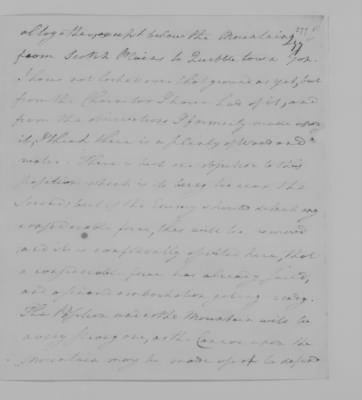 altogether, except below the Mountains
from Scotch Plains to Quibble town Gap.
I have not looked over that ground as yet, but
from the Character I have had of it, and
from the observations I formerly made upon
it, I think there is a plenty of Wood and
water. There is but one objection to this
position which is its being too near the
Enemy, but if the Enemy should detach any
considerable force, this will be removed
and it is confidently reported here, that
a considerable force has already sailed,
and a second embarkation getting ready.
The Position under the Mountain will be
a very strong one, as the Cannon upon the
Mountain may be made use of to defend